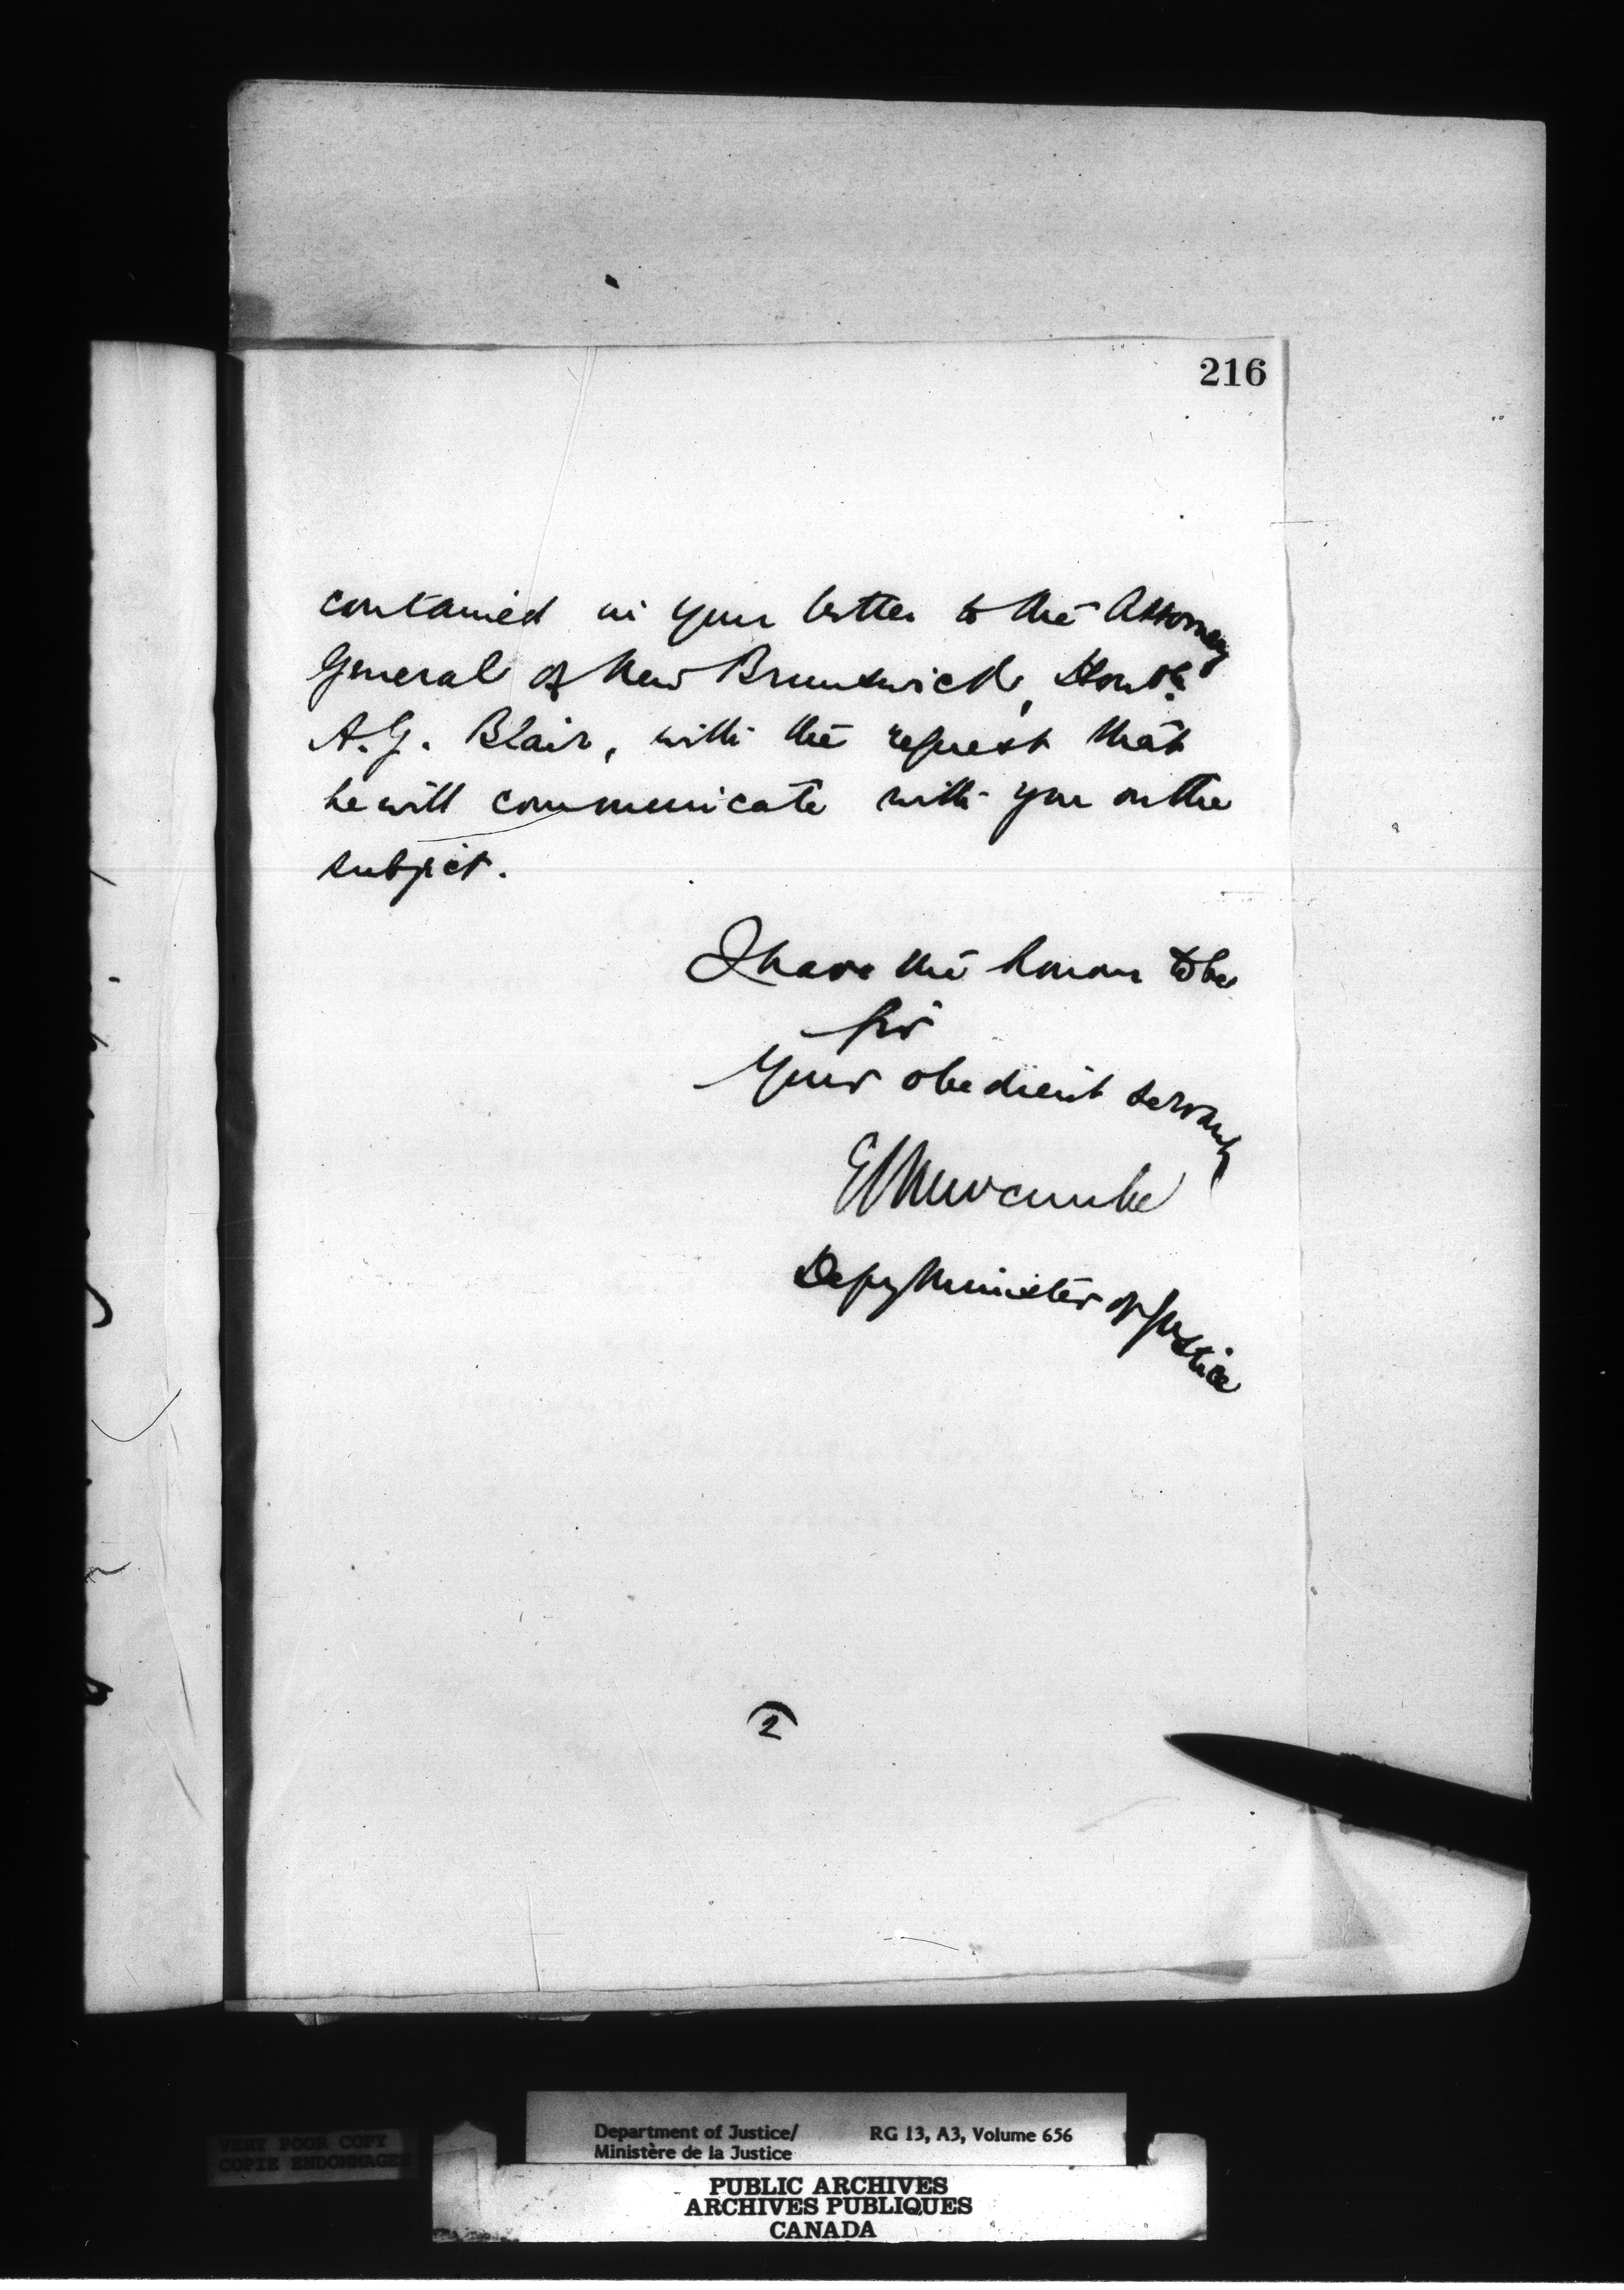 216
contained in your letter to the Attorney
General of New Brunswick, Honble
A.G. Blair, with the request that
he will communicate with you on the
subject.
I have the honour to be
Sir
Your obedient servant,
E L Newcombe
Depy Minister of Justice
2
VERY POOR COPY
COPIE ENDOMMAGEE
Department of Justice/ RG 13, A3, Volume 656
Ministère de la Justice
PUBLIC ARCHIVES
ARCHIVES PUBLIQUES
CANADA